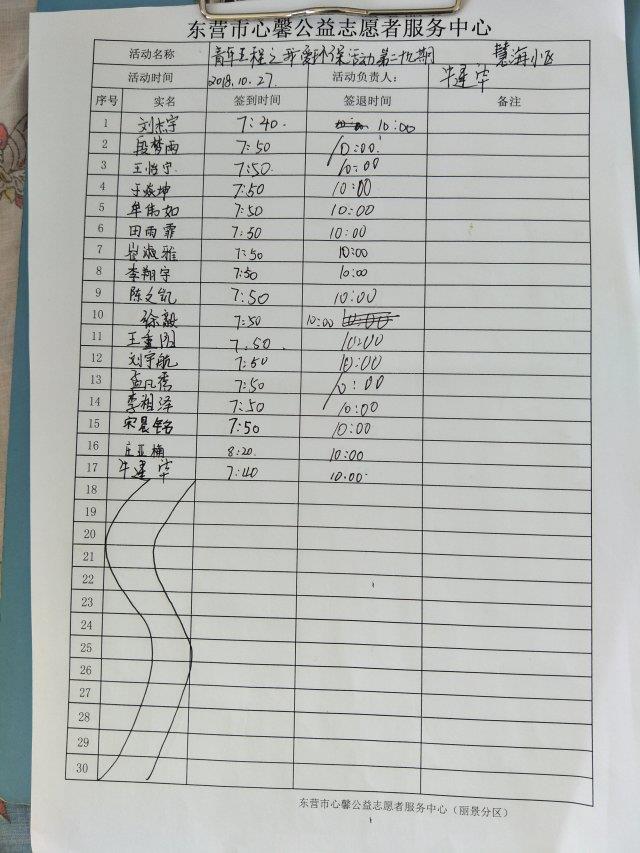 东营市心馨公益志愿者服务中心
活动名称 青年工程之我爱环保活动第二九期 慧海小区
活动时间 2018.10.27. 活动负责人： 牛莲华
序号 实名 签到时间 签退时间 备注
1 刘杰宇 7:40. 10:00
2 段梦雨 7:50 10:00.
3 王怡宁 7:50. 10:00
4 于焱坤 7:50 10:00
5 牟伟如 7:50 10:00
6 田雨霏 7:50 10:00
7 崔淑雅 7:50 10:00
8 李翔宇 7:50 10:00
9 陈文凯 7:50 10:00
10 徐毅 7:50 10:00
11 王 7.50. 10:00
12 刘宇航 7:50 10:00
13 孟凡 7:50 10:00
14 李相泽 7:50 10:00
15 宋晨铭 7:50 10:00
16 庄亚楠 8:20. 10:00
17 牛莲华 7:40 10:00.
18
19
20
21
22
23
24
25
26
27
28
29
30
东营市心馨公益志愿者服务中心（丽景分区）
1